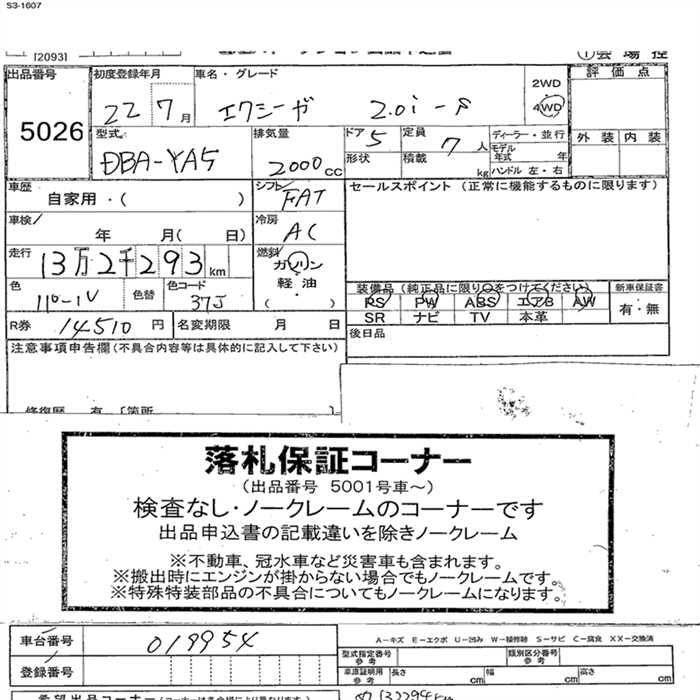 S3-1607
[2093]
①会場控
出品番号 初度登録年月 車名・グレード 2WD 評価点
5026 22 7月 エクシーガ 2.0i-S 4WD
型式 排気量 ドア 5 定員 7人 ディーラー・並行 外装 内装
DBA-YA5 2000cc 形状 積載 kg モデル年式 年
ハンドル 左・右
車歴 自家用・( ) シフト FAT セールスポイント (正常に機能するものに限ります)
車検 年 月( 日) 冷房 AC
走行 13万2千293km 燃料 ガソリン 軽油・( )
装備品(純正品に限り○をつけてください) 新車保証書
色 色替 色コード 37J PS PW ABS エアB AW 有・無
SR ナビ TV 本革
R券 14510円 名変期限 月 日 後日品
注意事項申告欄(不具合内容等は具体的に記入して下さい)
修復歴 有 [箇所
落札保証コーナー
(出品番号 5001号車～)
検査なし・ノークレームのコーナーです
出品申込書の記載違いを除きノークレーム
※不動車、冠水車など災害車も含まれます。
※搬出時にエンジンが掛からない場合でもノークレームです。
※特殊特装部品の不具合についてもノークレームになります。
車台番号 019954 A-キズ E-エクボ U-凹み W-補修跡 S-サビ C-腐食 XX-交換済
型式指定番号 参考 類別区分番号 参考
登録番号 車庫証明用 参考 長さ cm 幅 cm 高さ cm
希望出品コーナー